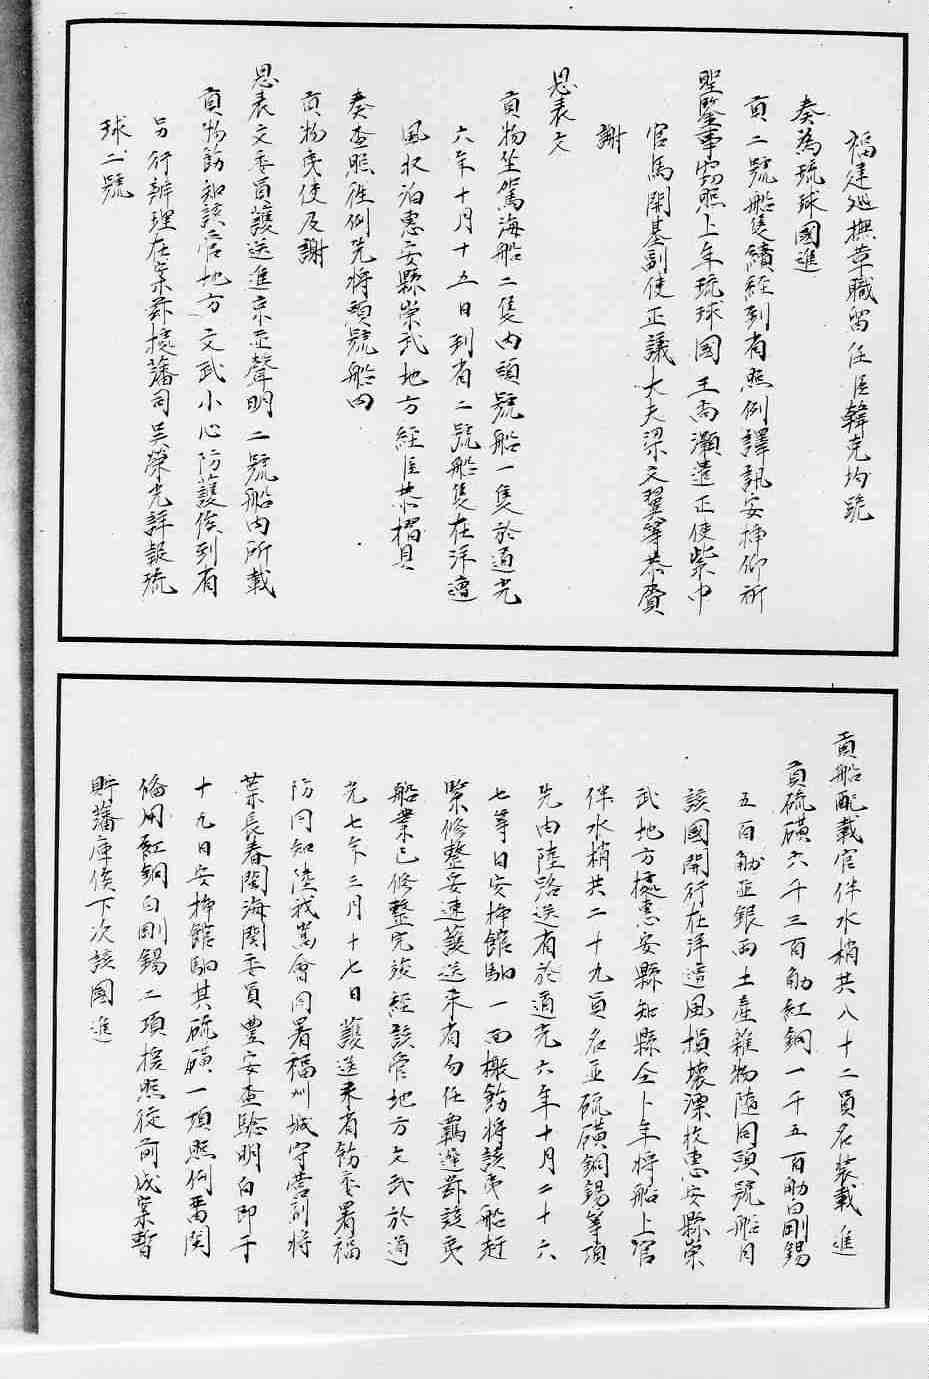 福建巡撫革職留任臣韓克均跪
奏為琉球國進
貢二號船隻續經到省照例譯訊安揷仰祈
聖鑒事竊照上年琉球國王尚灝遣正使紫巾
官馬開基副使正議大夫梁文翼等恭賫
謝
恩表文
貢物坐駕海船二隻內頭號船一隻於道光
六年十月十五日到省二號船隻在洋遭
風收泊惠安縣崇武地方經臣恭摺具
奏查照徃例先將頭號船內
貢物夷使及謝
恩表文委員護送進京並聲明二號船內所載
貢物飭知該管地方文武小心防護俟到省
另行辦理在案茲據藩司吳榮光詳報琉
球二號
貢船配載官伴水梢共八十二員名裝載進
貢硫磺六千三百觔紅銅一千五百觔白剛錫
五百觔並銀兩土產雜物隨同頭號船自
該國開行在洋遭風損壞漂收惠安縣崇
武地方據惠安縣知縣仝卜年將船上官
伴水梢共二十九員名並硫磺銅錫等項
先由陸路送省於道光六年十月二十六
七等日安揷館驛一面檄飭將該夷船赶
緊修整妥速護送来省勿任羈遲茲該夷
船業已修整完竣經該管地方文武於道
光七年三月十七日護送来省飭委署福
防同知陸我嵩會同署福州城守營副將
葉長春閩海關委員豊安查驗明白即于
十九日安揷館驛其硫磺一項照例番関
俻用紅銅白剛錫二項援照從前成案暫
貯藩庫俟下次該國進